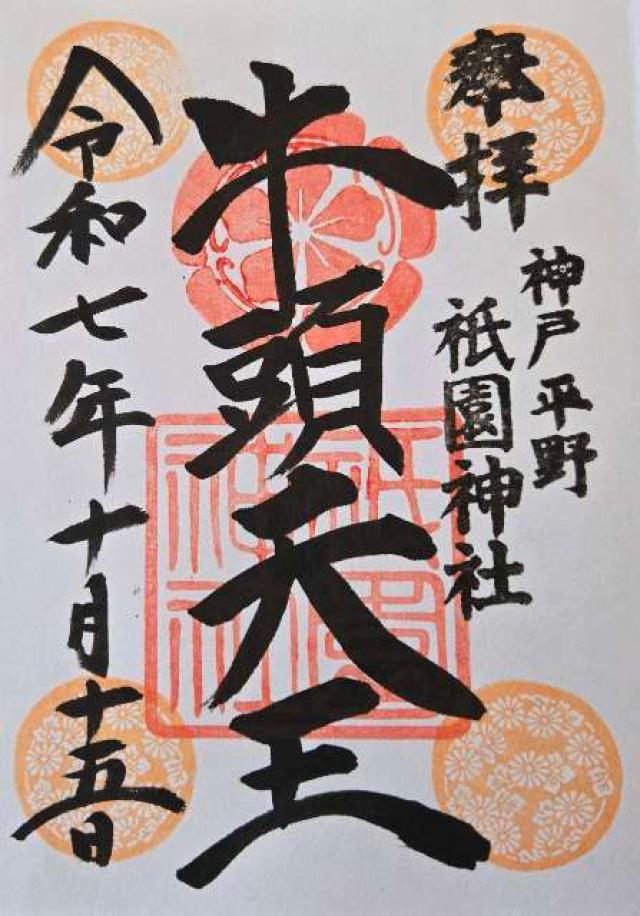 奉拝
神戸平野
祇園神社
牛頭天王
祇園
神社
令和七年十月十五日